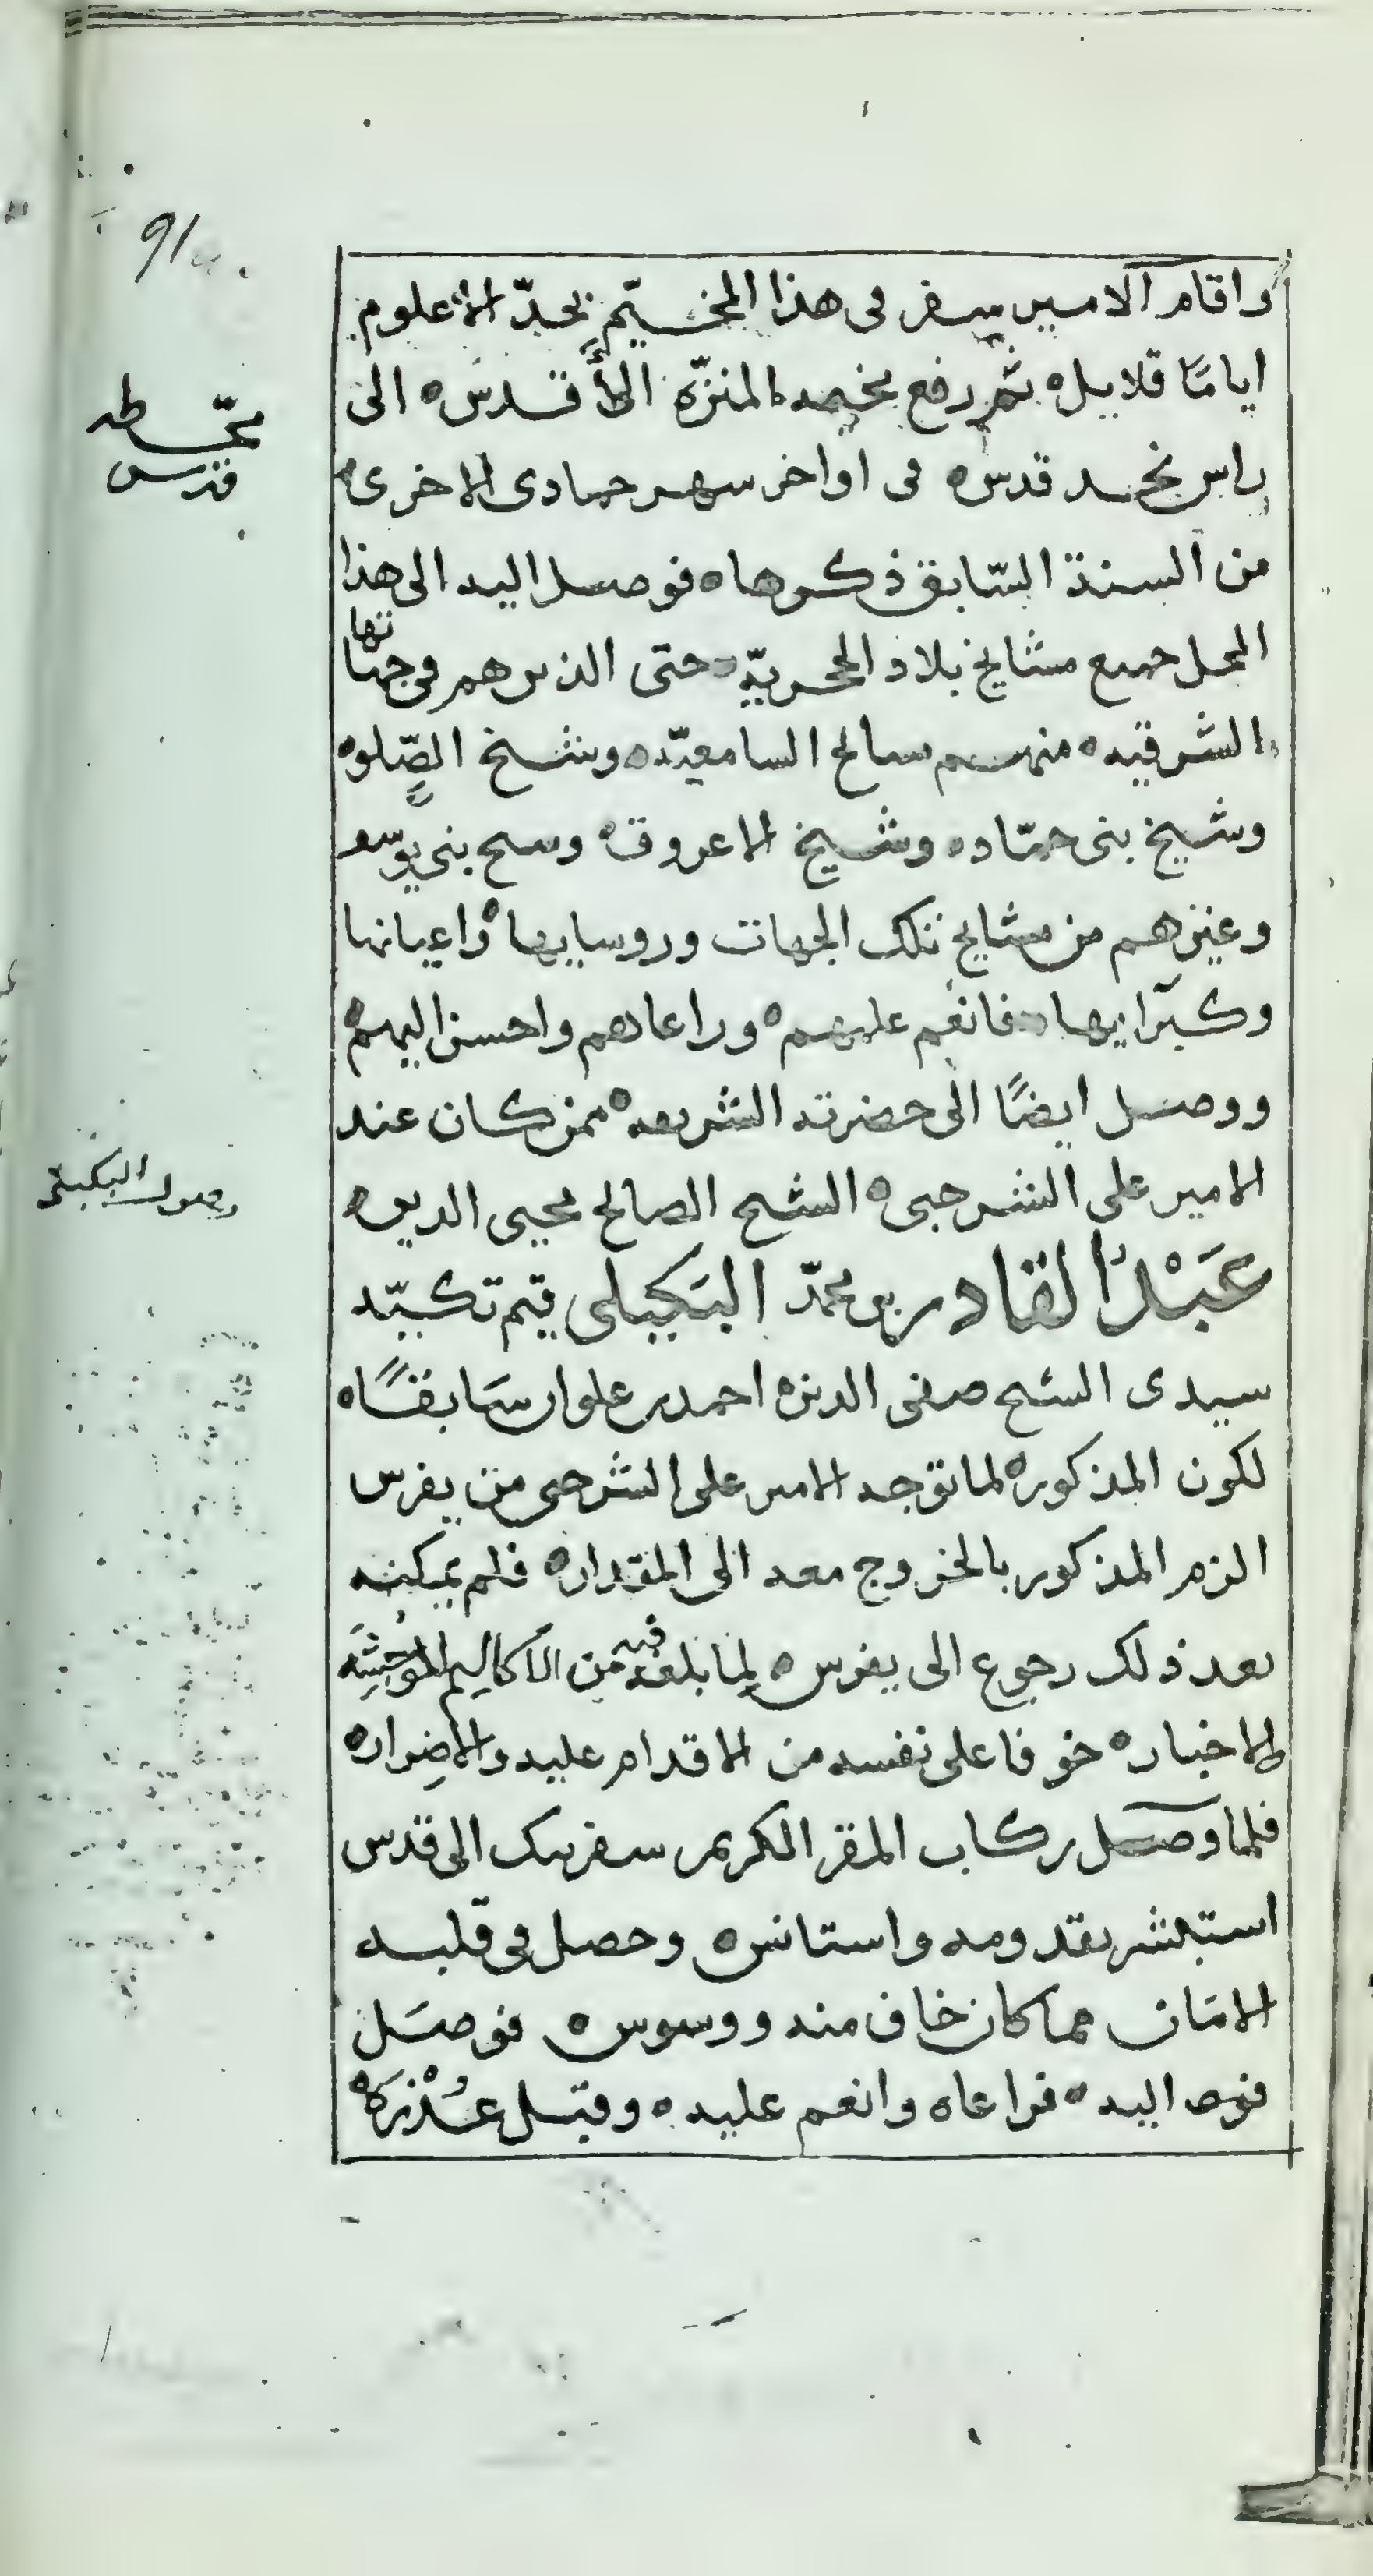 91
واقام الامير سفر فى هذا المخيّم بحدّ الاعلوم
اياما قلايل ثم رفع مخيمه المنزّه الاقدس الى
محطه
قدس
راس نجد قدس فى اواخر سهر حمادى الاخرى
من السنة السّابق ذكرها فوصل اليه الى هذا
المحل حميع مشايخ بلاد الحجريّه حتى الذين هم فى جهاتها
الشرقيه منهم مسايخ السامعيّه وشيخ الصّلوه
وشيخ بنى حمّاد وشيخ الاعروق وسح بنى يوسف
وغيرهم من مشايخ تلك الجهات وروسايها واعيانها
وكبرايها فانعم عليهم وراعاهم واحسن اليهم
ووصل ايضًا الى حضرته الشريفه ممن كان عند
وصول البكيلى
الامير على الشرجبى الشيخ الصالح محيى الدين
عَبْدُ القادر بن محمّد البكيلى قيم تكيّه
سيدى الشيخ صفى الدين احمد بن علوان سَابقًا
لكون المذكور لما توجه الامير على الشرجبى من يفرس
الزم المذكور بالخروج معه الى المقدار فلم يمكنه
بعد ذلك رجوع الى يفرس لما بلغه فيه من الاكاليم الموحشه
والاخبار خوفا على نفسه من الاقدام عليه والاضرار
فلما وصل ركاب المقر الكريم سفر بك الى قدس
استبشر بقدومه واستانس وحصل فى قلبه
الامَان مما كان خاف منه ووسوس فوصَل
فوص اليه فراعاه وانعم عليه وقبل عُذْرَه